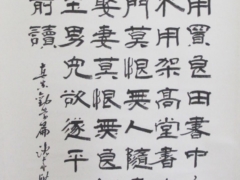 用買良田書中
不用架高堂書
門莫恨無人隨
娶妻莫恨無良
生男兒欲遂平
前讀
真宗勸學篇